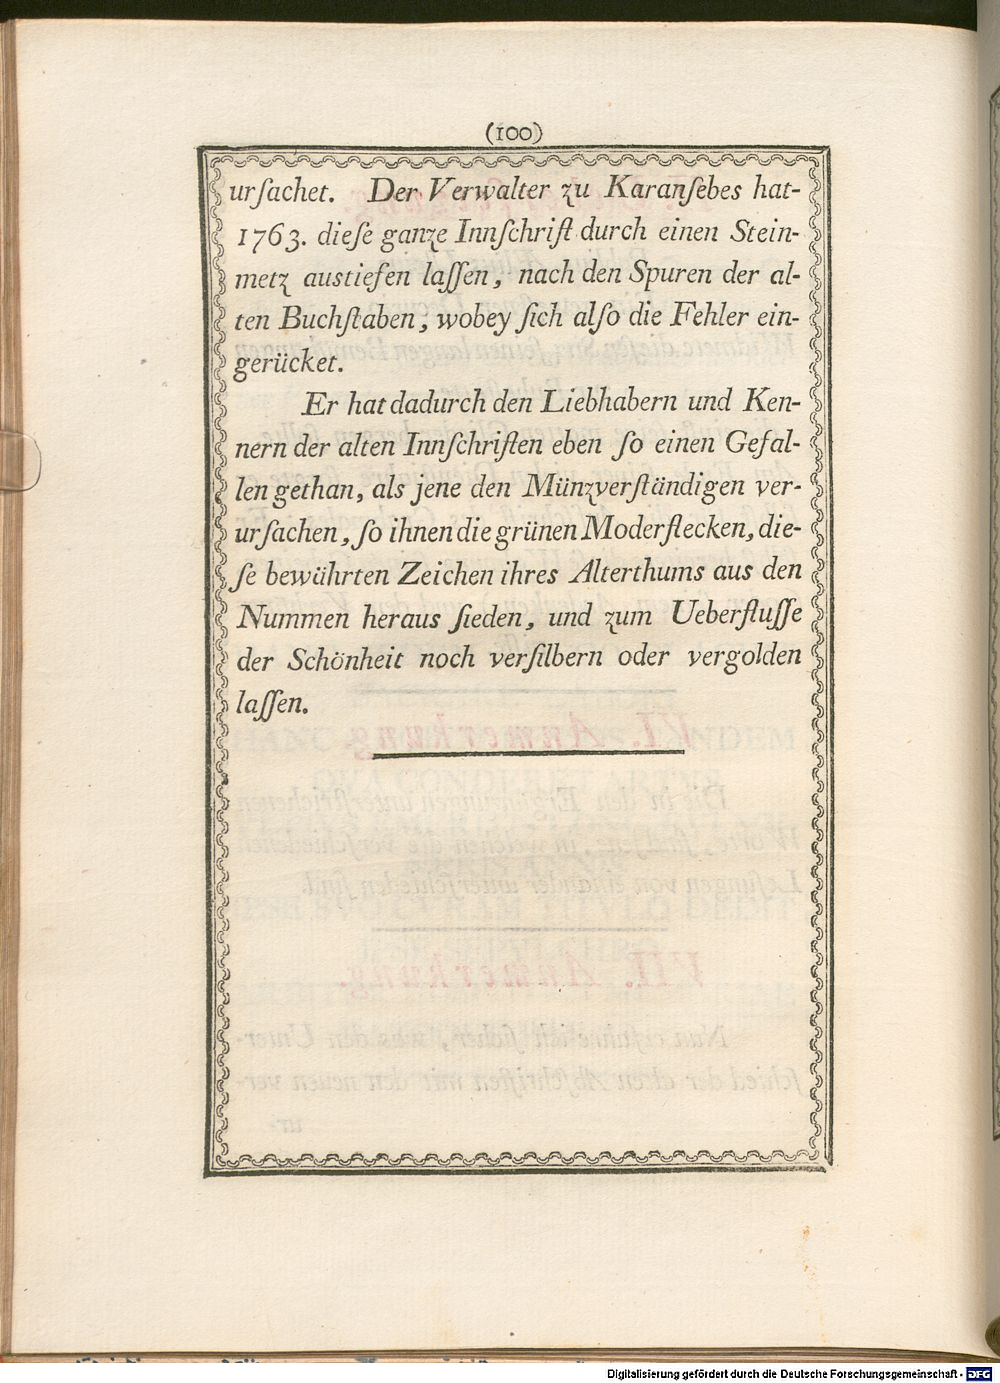 (100)
urſachet. Der Verwalter zu Karanſebes hat-
1763. dieſe ganze Innſchrift durch einen Stein-
metz austiefen laſſen, nach den Spuren der al-
ten Buchſtaben, wobey ſich alſo die Fehler ein-
gerücket.
Er hat dadurch den Liebhabern und Ken-
nern der alten Innſchriften eben ſo einen Gefal-
len gethan, als jene den Münzverſtändigen ver-
urſachen, ſo ihnen die grünen Moderflecken, die-
ſe bewährten Zeichen ihres Alterthums aus den
Nummen heraus ſieden, und zum Ueberfluſſe
der Schönheit noch verſilbern oder vergolden
laſſen.
Digitalisierung gefördert durch die Deutsche Forschungsgemeinschaft - DFG